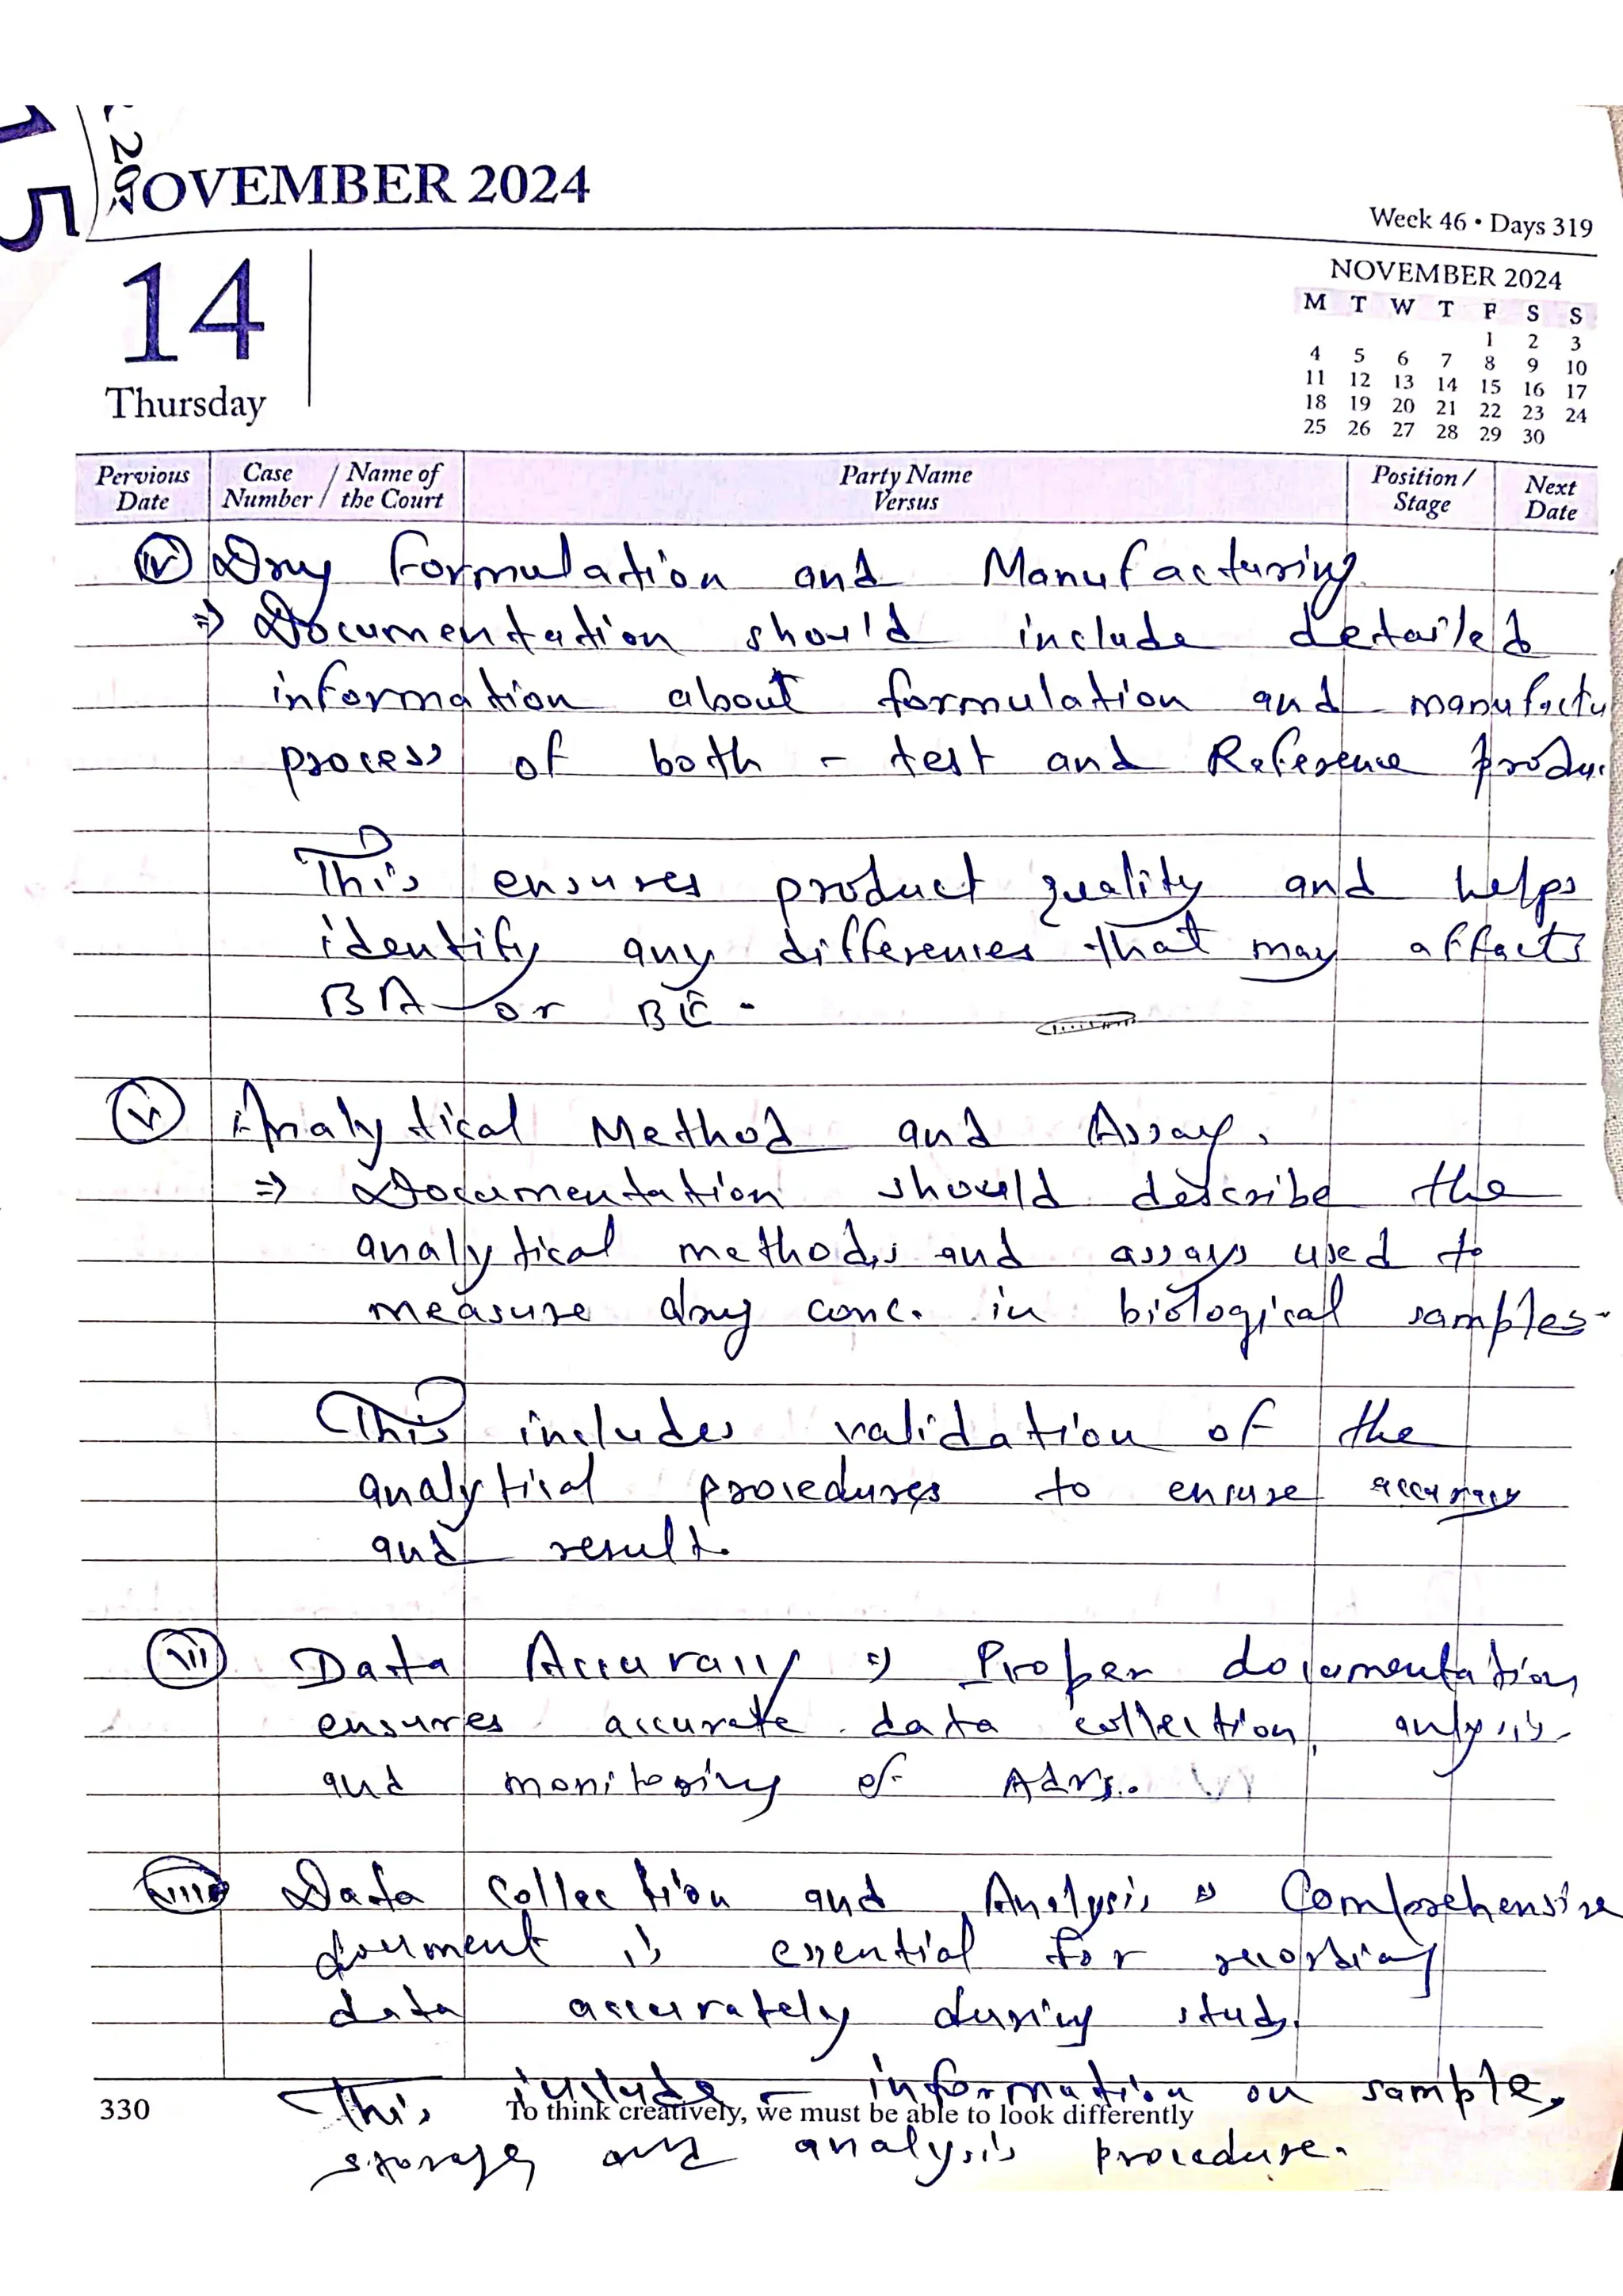 15
NOVEMBER 2024
Week 46 • Days 319
14
Thursday
NOVEMBER 2024
M T W T F S S
1 2 3
4 5 6 7 8 9 10
11 12 13 14 15 16 17
18 19 20 21 22 23 24
25 26 27 28 29 30
Pervious Date
Case Number / Name of the Court
Party Name Versus
Position / Stage
Next Date
(iv) Drug Formulation and Manufacturing
⇒ Documentation should include detailed
information about formulation and manufactu
process of both - test and Reference produc
This ensures product quality and helps
identify any differences that may affects
BA or BE.
(v) Analytical Method and Assay.
⇒ Documentation should describe the
analytical methods and assays used to
measure drug conc. in biological samples.
This includes validation of the
analytical procedures to ensure accuracy
and result.
(vii) Data Accuracy ⇒ Proper documentation
ensures accurate data collection, anlysis
and monitoring of ADRs.
(viii) Data Collection and Analysis ⇒ Comprehensive
document is essential for recording
data accurately during study.
This include - information on sample,
storage and analysis procedure.
330
To think creatively, we must be able to look differently